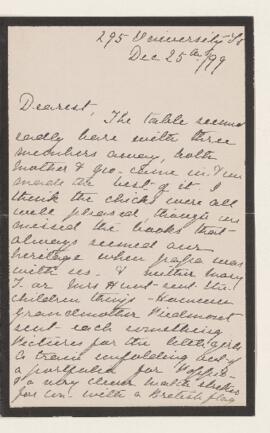 295 University St
Dec 25th /99
Dearest,
The table seemed
sadly bare with three
members away, both
Mother & Geo. came in & we
made the best of it. I
think the chicks were all
well pleased, though we
missed the books that
always seemed our
heritage when papa was
with us. & neither Mary
T. or Mrs Hunt sent the
children things - However
Grandmother Piedmont
sent each something
Pictures for the little girls
a train unfolding
a portfolio for
& a very clever match
for wn. with a British flag